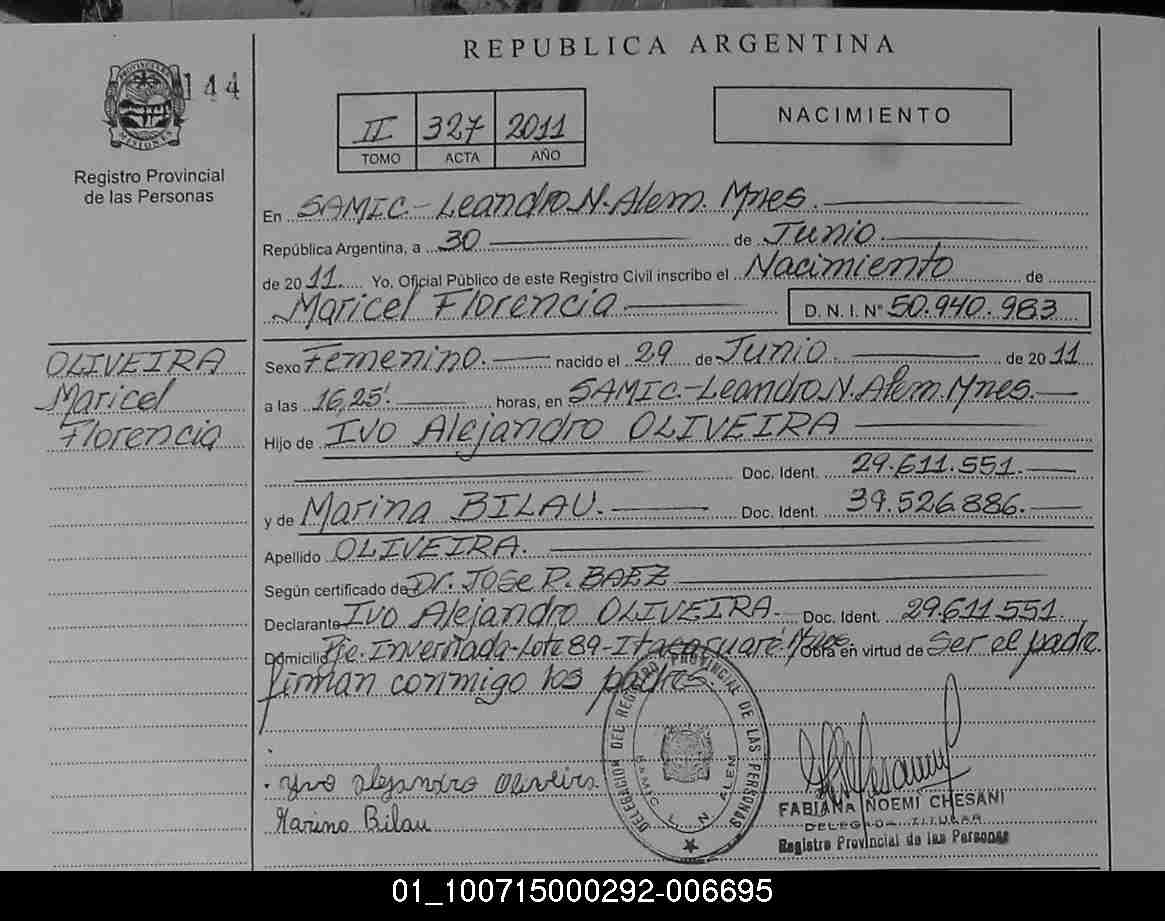 REPUBLICA ARGENTINA
PROVINCIA DE MISIONES
144
Registro Provincial
de las Personas
II 327 2011
TOMO ACTA AÑO
NACIMIENTO
En SAMIC-Leandro N. Alem. Mnes.
República Argentina, a 30 de Junio.
de 2011. Yo, Oficial Público de este Registro Civil inscribo el Nacimiento de
Maricel Florencia D. N. I. N° 50.940.983
OLIVEIRA
Maricel
Florencia
Sexo Femenino. nacido el 29 de Junio de 2011
a las 16,25' horas, en SAMIC-Leandro N. Alem. Mnes.
Hijo de Ivo Alejandro OLIVEIRA
Doc. Ident. 29.611.551.
y de Marina BILAU. Doc. Ident. 39.526.886.
Apellido OLIVEIRA.
Según certificado de Dr. JOSE D. BAEZ
Declarante Ivo Alejandro OLIVEIRA. Doc. Ident. 29.611.551.
Domicilio Pje. Invernada-Lote 89-Itacaruaré. Mnes. Obra en virtud de Ser el padre.
firman conmigo los padres.
DELEGACION DEL REGISTRO PROVINCIAL DE LAS PERSONAS
SAMIC L. N. ALEM
Yvo Alejandro Oliveira
Marina Bilau
FABIANA NOEMI CHESANI
DELEGADA TITULAR
Registro Provincial de las Personas
01_100715000292-006695